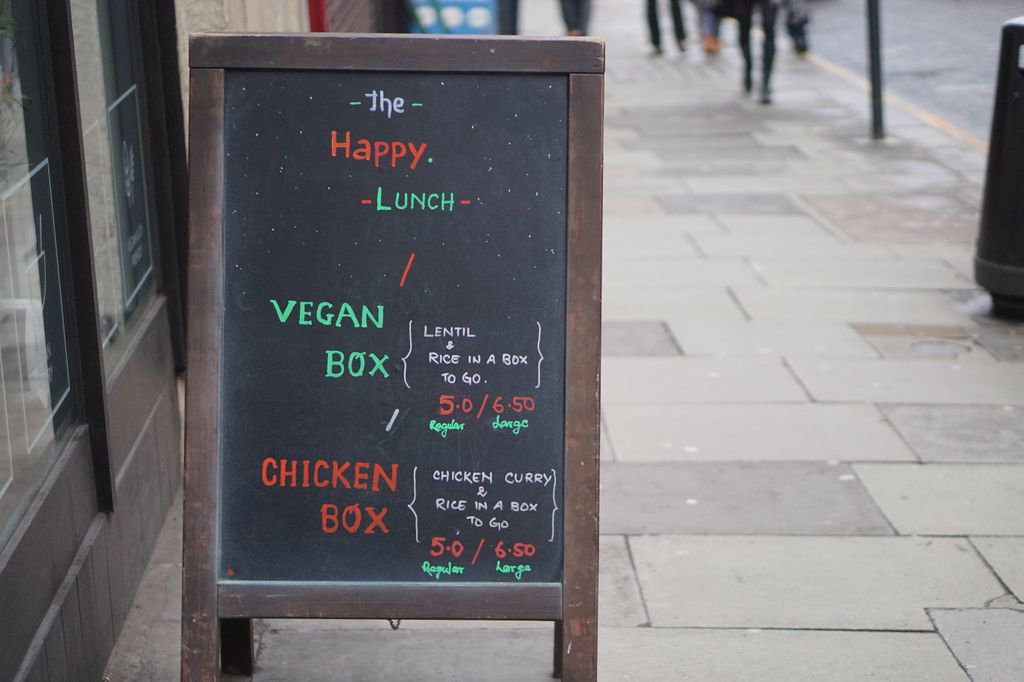 - The -
Happy.
- LUNCH -
/
VEGAN
BOX
{ LENTIL
&
RICE IN A BOX
TO GO. }
5.0 / 6.50
Regular Large
/
CHICKEN
BOX
{ CHICKEN CURRY
&
RICE IN A BOX
TO GO }
5.0 / 6.50
Regular Large